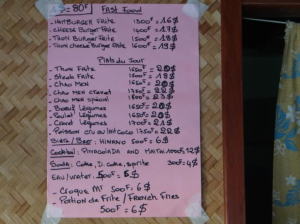 1$ = 80F Fast Food
- HAMBURGER Frite 1300F = 16$
- CHEESE BURGER Frite 1400F = 17$
- THON BURGER Frite 1500F = 18$
- THON CHEESE BURGER Frite 1600F = 19$
Plats du Jour
- THON Frite 1650F = 20$
- Steak Frite 1500F = 18$
- CHAO MEN 1650F = 20$
- CHAO MEN
- CHAO MEN Spécial
- Boeuf Légumes 1650F = 20$
- Poulet Légumes 1650F = 20$
- Légumes
- Poisson cru au lait coco 1750F = 22$
Biere/Beer: HINANO 500F = 6$
Cocktail: PINACOLADA AND MAITAI 1000F = 12$
Soda: Coke, D. Coke, Sprite 300F = 4$
EAU/water: 500F = 6$
- Croque Mr 500F = 6$
- Portion de Frite / French Fries
500F = 6$